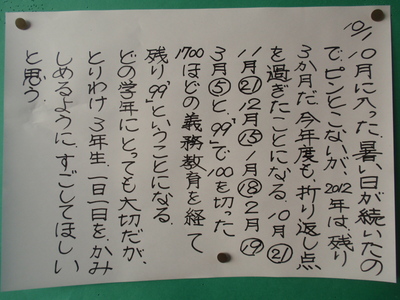 10/1
10月に入った。暑い日が続いたの
で、ピンとこないが、2012年は、残り
3か月だ。今年度も、折り返し点
を過ぎたことになる。10月㉑
11月㉑12月⑮1月⑱2月⑲
3月⑤と、“99”で100を切った。
1700ほどの義務教育を経て
残り“99”ということになる。
どの学年にとっても大切だが、
とりわけ3年生、一日一日を、かみ
しめるように、すごしてほしい
と思う。